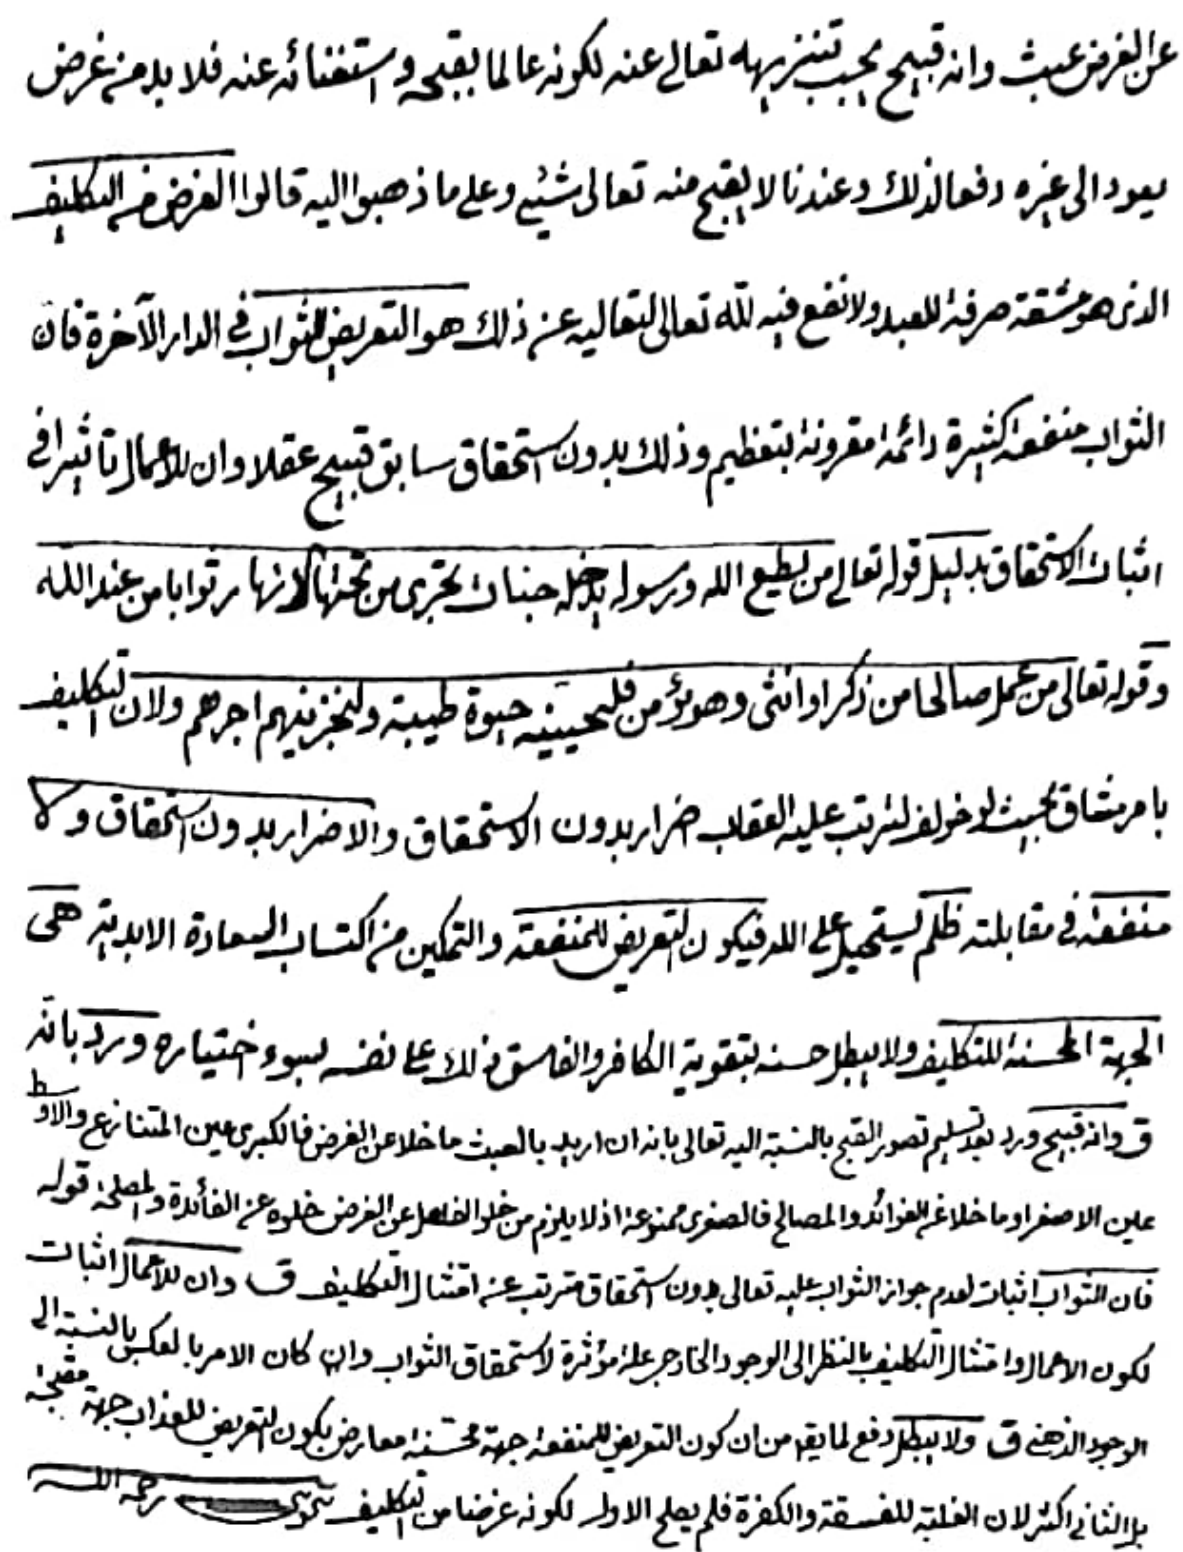 عن الغرض عبث وانه قبيح يجب تنزيهه تعالى عنه لكونه عالما بقبحه و استغنائه عنه فلا بد من غرض
يعود الى غيره دفعا لذلك وعندنا لا يقبح منه تعالى شئي وعلى ما ذهبوا اليه قالوا الغرض من التكليف
الذى هو مشقة صرفة للعبد ولا نفع فيه لله تعالى لتعاليه عن ذلك هو التعريض للثواب في الدار الآخرة فان
الثواب منفعة كثيرة دائمة مقرونة بتعظيم وذلك بدون استحقاق سابق قبيح عقلا وان للاعمال تاثيرا في
اثبات الاستحقاق بدليل قوله تعالى من يطيع الله ورسوله يدخله جنات تجرى من تحتها الانهار ثوابا من عند الله
وقوله تعالى من عمل صالحا من ذكر او انثى وهو مؤمن فلنحيينه حيوة طيبة ولنجزينهم اجرهم ولان التكليف
بامر مشاق بحيث لو خولف لترتب عليه العقاب اضرار بدون الاستحقاق والاضرار بدون استحقاق ولا
منفعة في مقابلته ظلم يستحيل على الله فيكون التعريض للمنفعة والتمكين من اكتساب السعادة الابدية هى
الجهة المحسنة للتكليف ولا يبطل حسنه بتفوية الكافر والفاسق ذلك على نفسه بسوء اختياره ورد بانه
ق وانه قبيح ورد بعد تسليم تصور القبح بالنسبة اليه تعالى بانه ان اريد بالعبث ما خلا عن الغرض فالكبرى عين المتنازع والاوسط
عين الاصغر او ما خلا عن الفوائد والمصالح فالصغرى ممنوعة اذ لا يلزم من خلو الفاعل عن الغرض خلوه عن الفائدة والمصلحة قوله
فان الثواب اثبات لعدم جواز الثواب عليه تعالى بدون استحقاق مترتب عن امتثال التكليف ق وان للاعمال اثبات
لكون الاعمال وامتثال التكليف بالنظر الى الوجود الخارجي علة مؤثرة لاستحقاق الثواب وان كان الامر بالعكس بالنسبة الى
الوجود الذهنى ق ولا يبطل دفع لما يقم من ان كون التعريض للمنفعة جهة محسنة معارض بكون التعريض للعذاب جهة مقبحة
بل الثانى اكثر لان الغلبة للفسقة والكفرة فلم يصلح الاول لكونه غرضا من التكليف رحمه الله